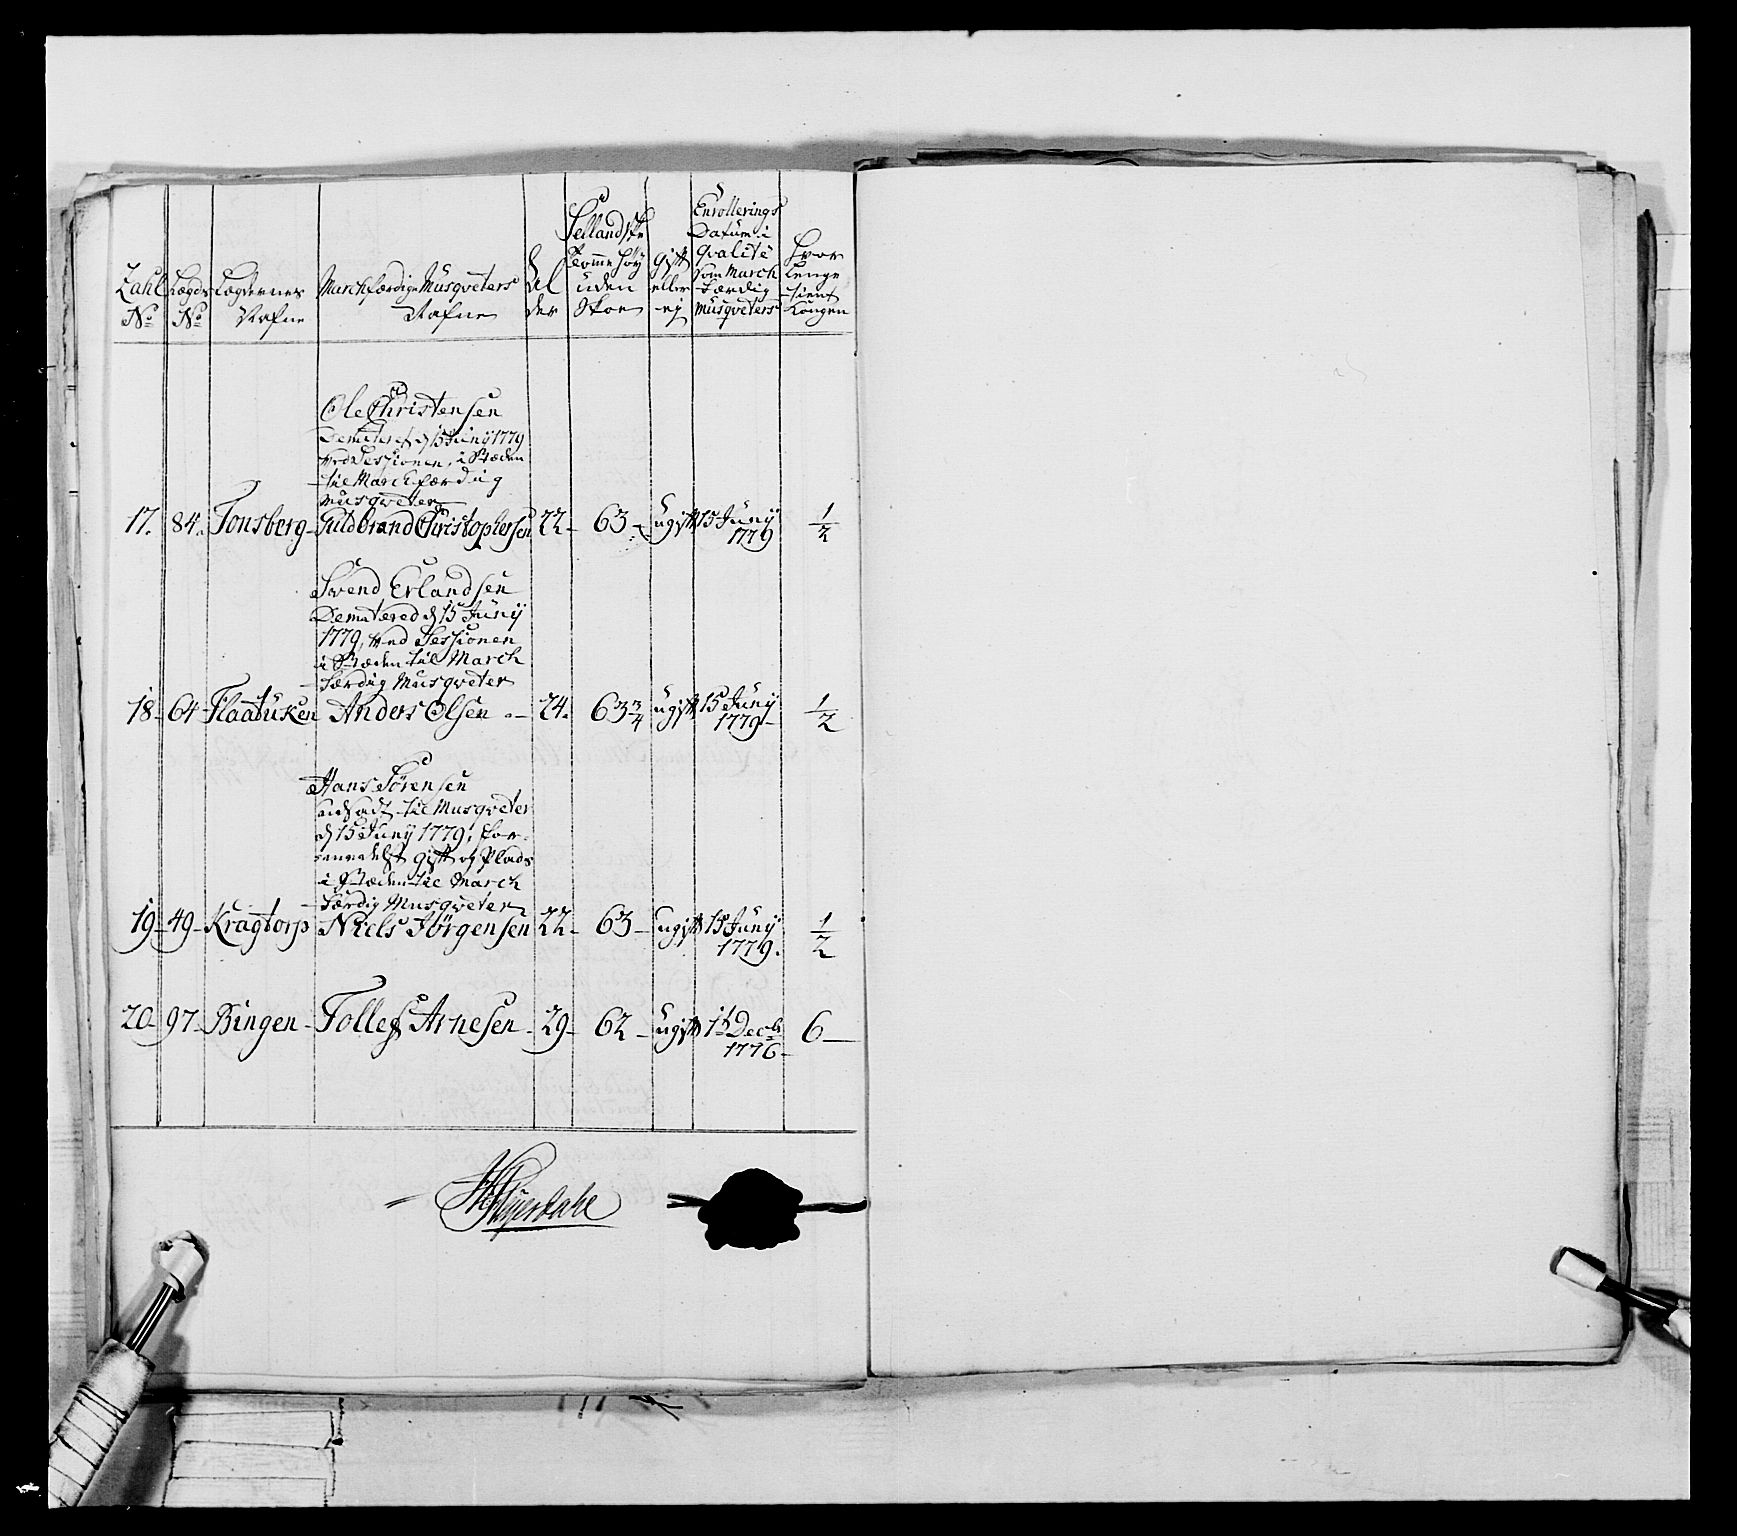 Zahl No
Lægds No
Lægdernes Nafne
Marchfærdige Musqveters Nafne
Al der
Sellandske Tomme høy uden Skoe
gift eller ej
Enrollerings Datum i qvalité som March færdig Musqveters
Hvor lenge tient Kongen
Ole Christensen
d 15 Junij 1779
ved Sessionen, i Stæden
til Marchfærdig
Musqveter
17. 84. Tonsberg Guldbrand Christophersen 22 63 ugift 15 Junij 1779 1/2
Svend Erlandsen
d 15 Junij
1779, ved Sessionen
i Stæden til March
færdig Musqveter
18 64 Flaatuken Anders Olsen 24. 63 3/4 ugift 15 Junij 1779 1/2
Hans Sørensen
indsadt til Musqveter
d 15 Junij 1779, for
gift og Plads
i Stæden til March
færdig Musqveter
19 49 Kragtorp Niels Jörgensen 22 63 ugift 15 Junij 1779. 1/2
20 97 Bingen Tollef Arnesen 29 62 ugift Decbr 1776 6